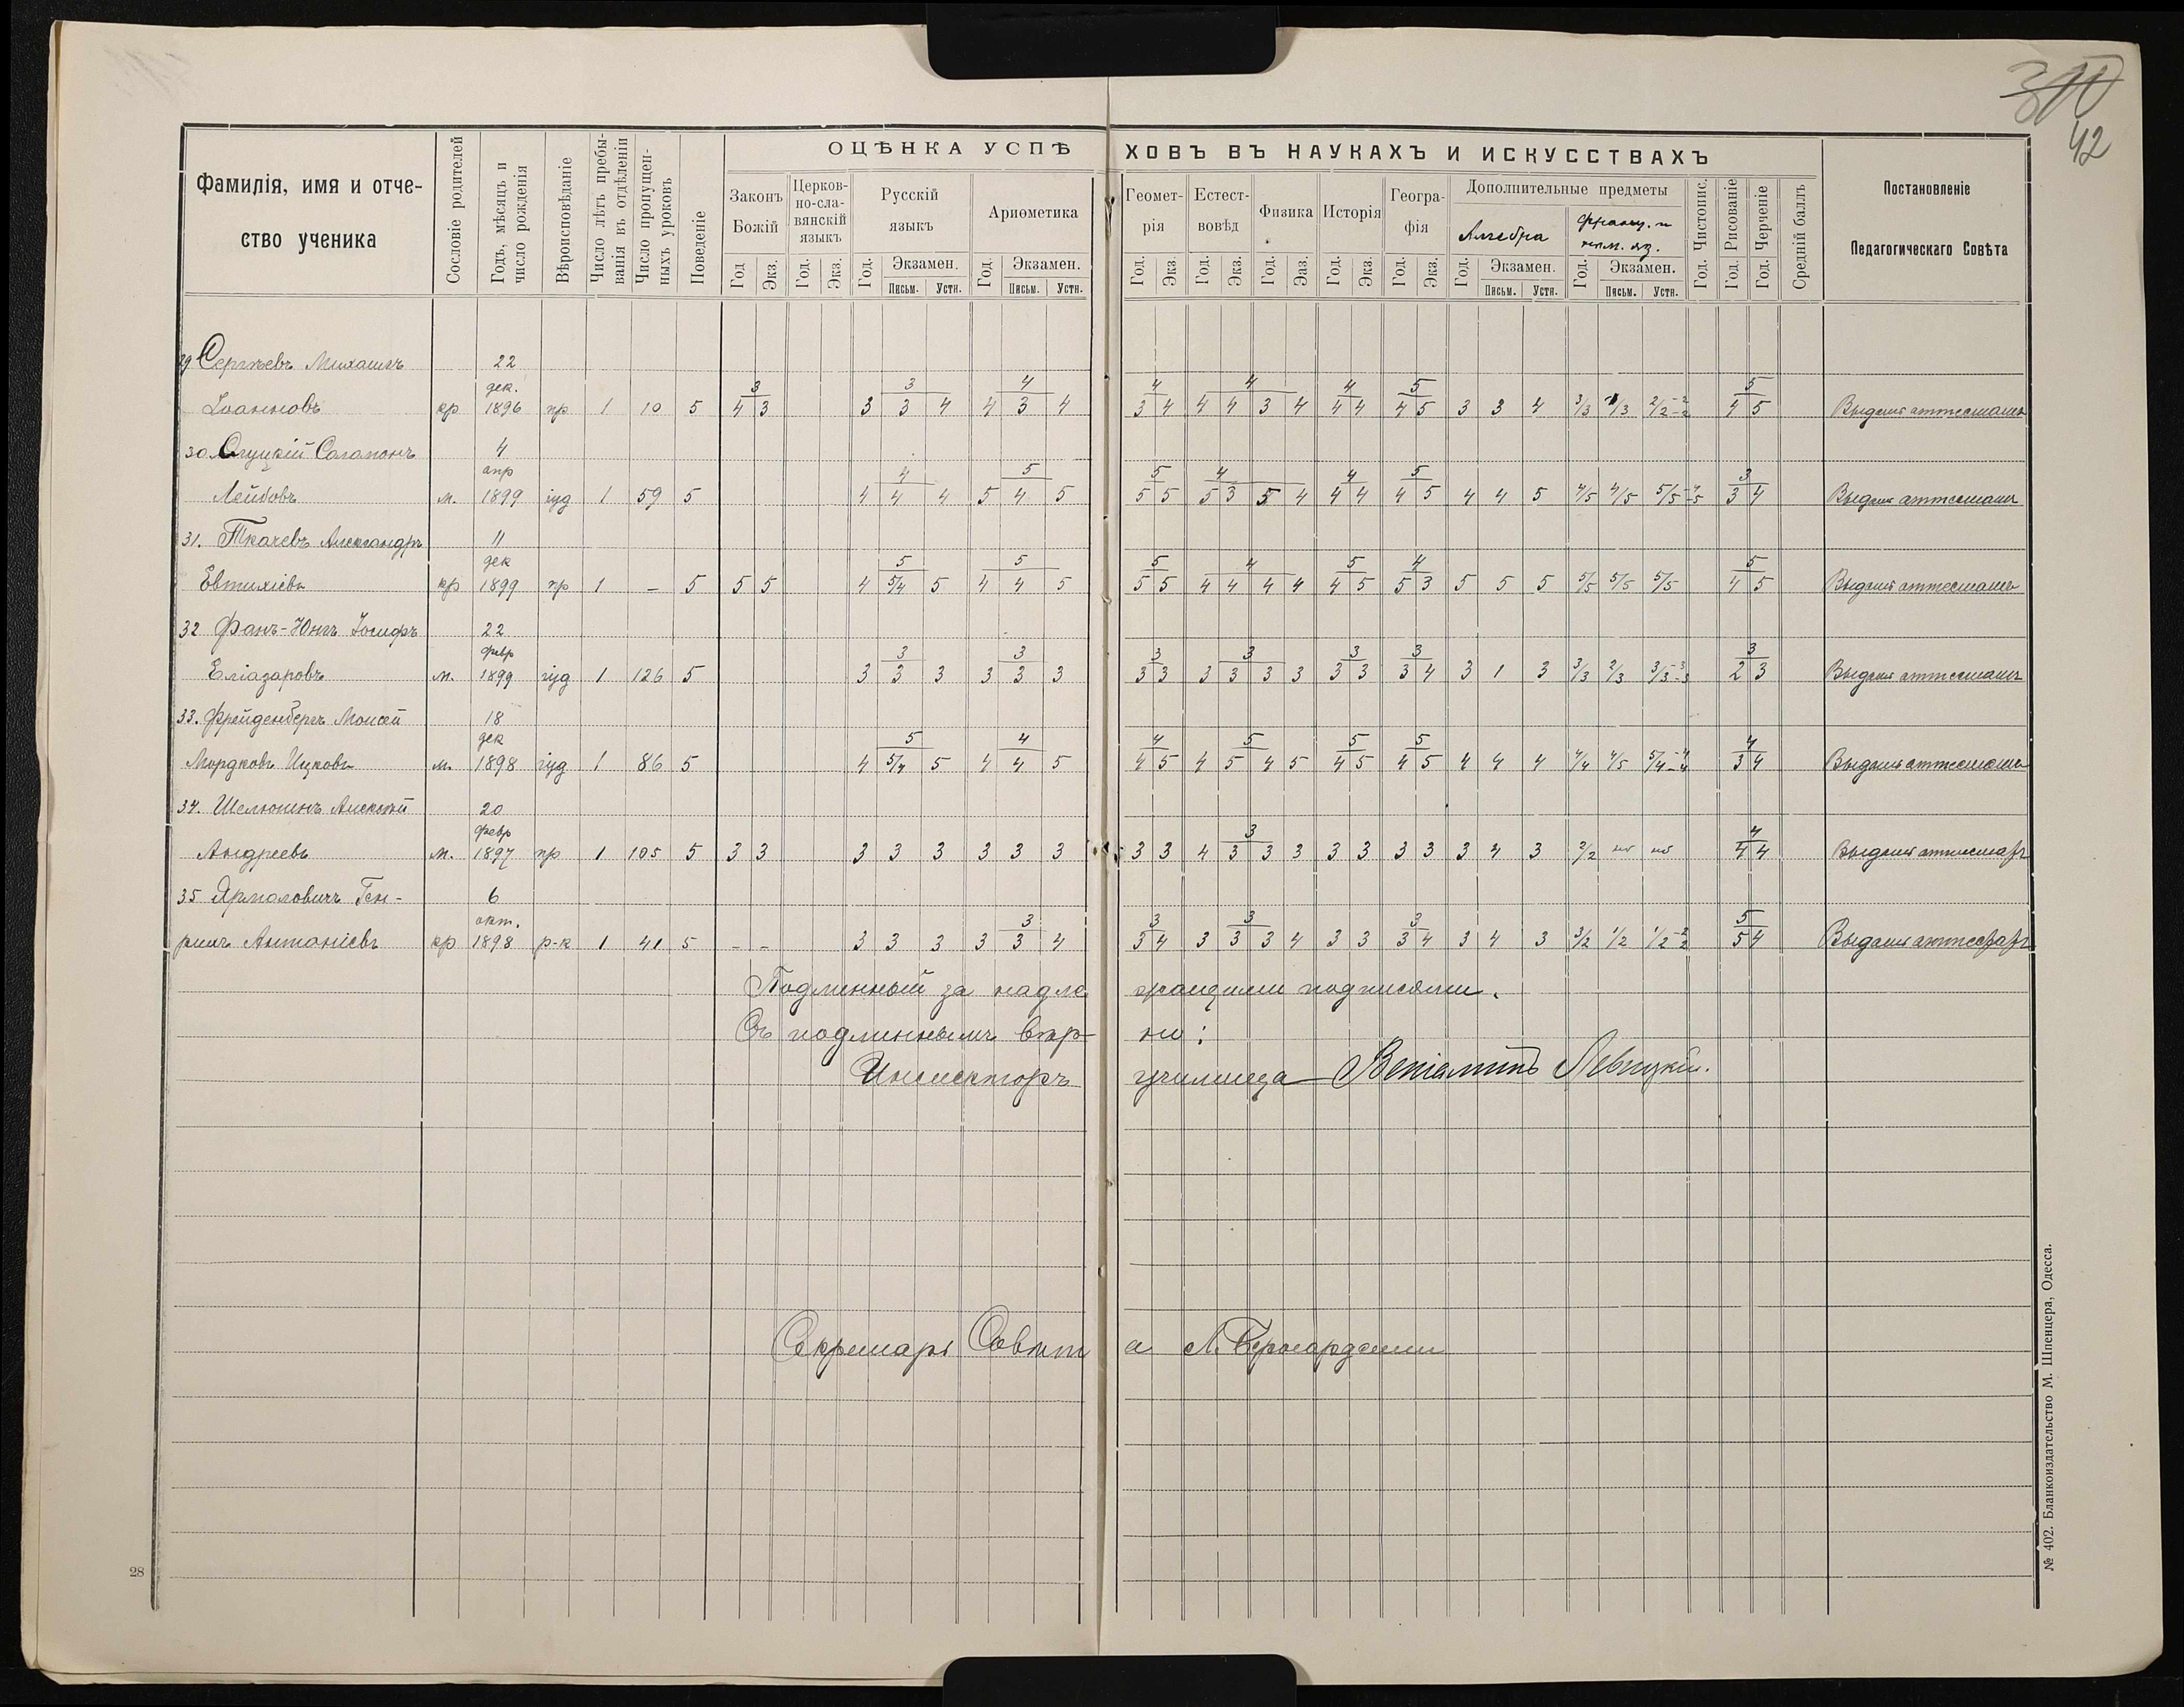 300
42
ОЦѢНКА УСПѢХОВЪ ВЪ НАУКАХЪ И ИСКУССТВАХЪ
Фамилія, имя и отчество ученика
Сословіе родителей
Годъ, мѣсяцъ и число рожденія
Вѣроисповѣданіе
Число лѣтъ пребыванія въ отдѣленіи
Число пропущенныхъ уроковъ
Поведеніе
Законъ Божій
Церковно-славянскій языкъ
Русскій языкъ
Ариѳметика
Геометрія
Естествовѣд
Физика
Исторія
Географія
Дополнительные предметы
Алгебра
Франц. и нѣм. яз.
Год. Чистопис.
Год. Рисованіе
Год. Черченіе
Средній баллъ
Постановленіе Педагогическаго Совѣта
Год Экз. Год. Экз. Год. Экзамен. Письм. Устн. Год. Экзамен. Письм. Устн.
Год. Экз. Год. Экз. Год. Экз. Год. Экз. Год. Экз. Год. Экзамен. Письм. Устн. Год. Экзамен. Письм. Устн.
29 Сергѣевъ Михаилъ 22
дек. 3 3 4 4 4 4 5 5
Іоанновъ кр 1896 пр 1 10 5 4 3 3 3 4 4 3 4 3 4 4 4 3 4 4 4 4 5 3 3 4 3/3 1/3 2/2-2-2 4 5 Выданъ аттестатъ
30. Слуцкій 4
апр 4 5 5 4 4 5 3
Лейбовъ м. 1899 іуд 1 59 5 4 4 4 5 4 5 5 5 5 3 5 4 4 4 4 5 4 4 5 4/5 4/5 5/5-4-5 3 4 Выданъ аттестатъ
31. Ткачевъ Александръ 11
дек 5 5 5 4 5 4 5
Евтихіевъ кр 1899 пр 1 – 5 5 5 4 5/4 5 4 4 5 5 5 4 4 4 4 4 5 5 3 5 5 5 5/5 5/5 5/5 4 5 Выданъ аттестатъ
32 Фанъ-Юнгъ Іосифъ 22
февр 3 3 3 3 3 3 3
Еліазаровъ м. 1899 іуд 1 126 5 3 3 3 3 3 3 3 3 3 3 3 3 3 3 3 4 3 1 3 3/3 2/3 3/3-3-3 2 3 Выданъ аттестатъ
33. Фрейденбергъ Моисей 18
дек 5 4 4 5 5 5 4
Мордковъ Ицковъ м. 1898 іуд 1 86 5 4 5/4 5 4 4 5 4 5 4 5 4 5 4 5 4 5 4 4 4 4/4 4/5 5/4-4-4 3 4 Выданъ аттестатъ
34. Шелюгинъ Алексѣй 20
февр 3 4
Андреевъ м. 1897 пр 1 105 5 3 3 3 3 3 3 3 3 3 3 4 3 3 3 3 3 3 3 3 4 3 2/2 но но 4 4 Выданъ аттестатъ
35 Ярмоловичъ Ген- 6
окт. 3 3 3 3 5
рихъ Антоніевъ кр 1898 р-к 1 41 5 – – 3 3 3 3 3 4 3 4 3 3 3 4 3 3 3 4 3 4 3 3/2 1/2 1/2-2-2 5 4 Выданъ аттестатъ
Подлинный за надлежащими подписями.
Съ подлиннымъ вѣрно:
Инспекторъ училища Веніаминъ Левицкій.
Секретарь Совѣта Л.
28
№ 402. Бланкоиздательство М. Шпенцера, Одесса.